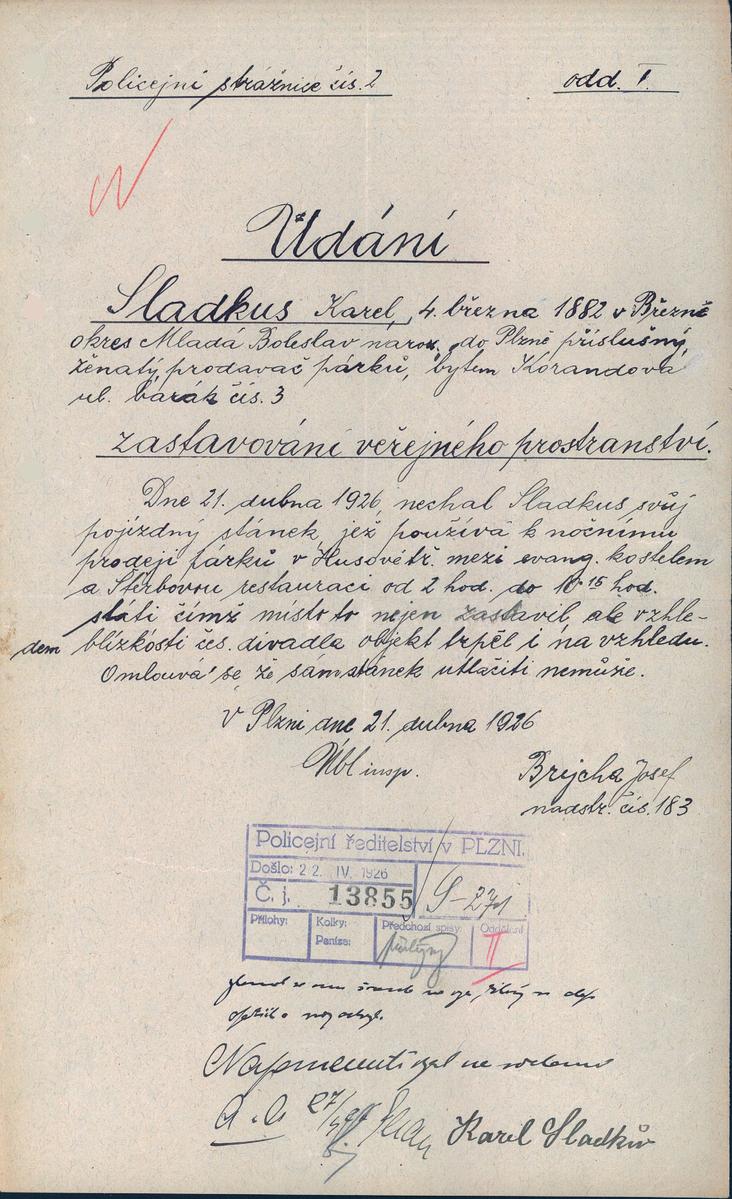 Policejní strážnice čís. 2 odd. I.
Udání
Sladkus Karel, 4. března 1882 v Březně
okres Mladá Boleslav naroz. do Plzně příslušný,
ženatý, prodavač párků, bytem Korandova
ul. barák čís. 3
zastavování veřejného prostranství.
Dne 21. dubna 1926, nechal Sladkus svůj
pojízdný stánek, jež používá k nočnímu
prodeji párků v Husově tř. mezi evang. kostelem
a Štěrbovou restaurací od 2 hod. do 10 15 hod.
státi čímž místo to nejen zastavil, ale vzhle-
dem blízkosti čes. divadla objekt trpěl i na vzhledu.
Omlouvá se že sam stánek utlačiti nemůže.
V Plzni dne 21. dubna 1926
Úbl insp. Brejcha Josef
nadstr. čís. 183
Policejní ředitelství v PLZNI.
Došlo: 22. IV. 1926
Č. j. 13855 S-271
Přílohy: Kolky: Předchozí spisy: Oddělení
Peníze: II
Napomenutí vzal na vědomí
a. a. 27/4 Karel Sladkus